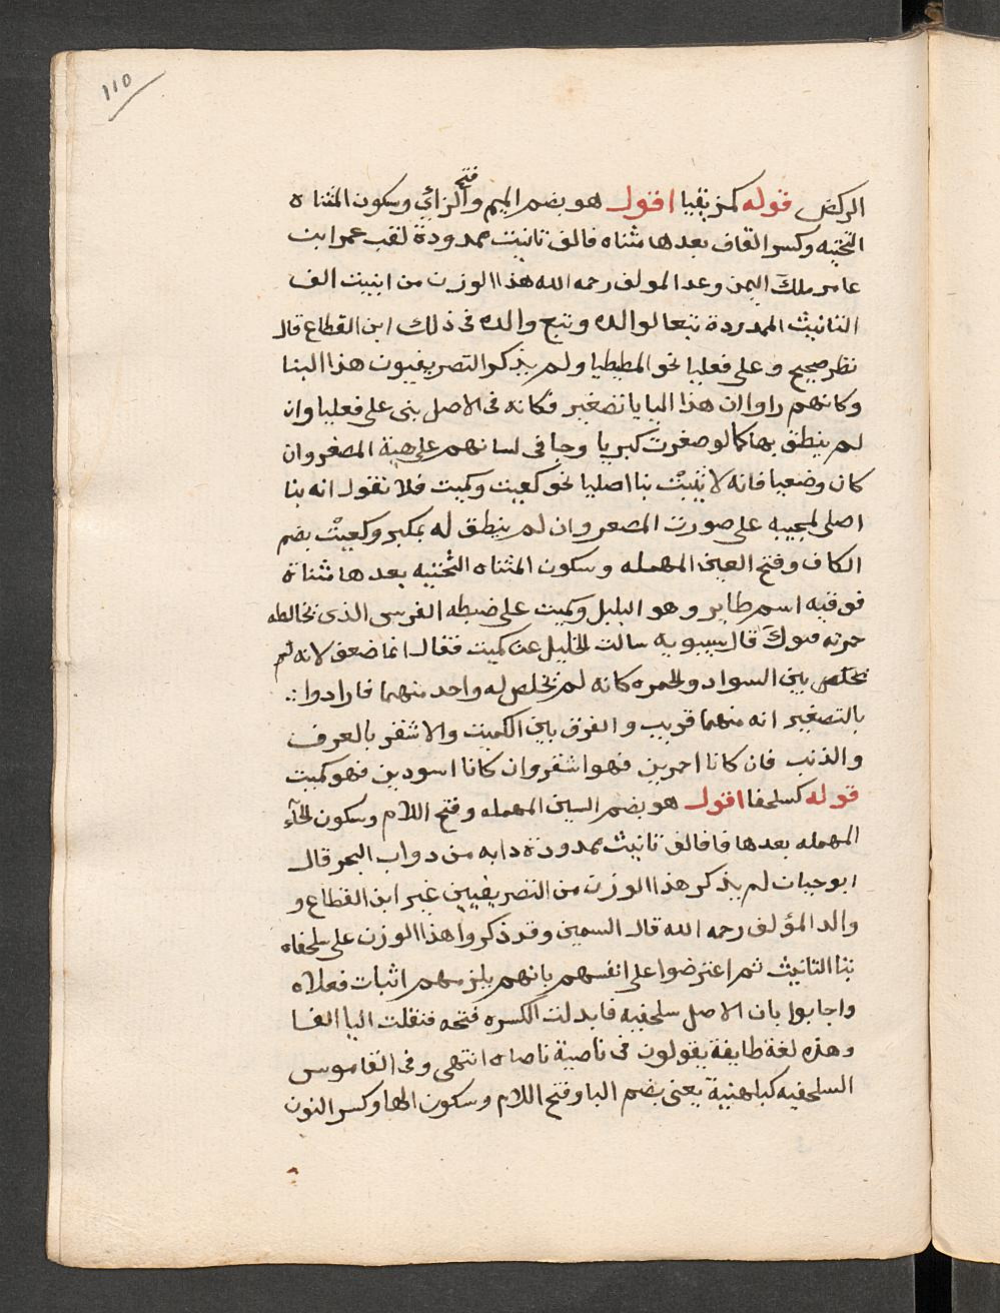 110
الركض قوله كمزيقيا اقول هو بضم الميم وفتح الزاي وسكون المثناه
التحتيه وكسر القاف بعدها مثناه فالف تانيث ممدودة لقب عمرابن
عامر ملك اليمن وعد المولف رحمه الله هذا الوزن من ابنيت الف
التانيث الممدودة تبعا لوالده وتبع والده في ذلك ابن القطاع قال
نظر صحيح وعلى فعليا نحو المطيطيا ولم يذكر التصريفيون هذا البنا
وكانهم راوا ان هذا اليا ياتصغير فكانه في الاصل بنى على فعليا وان
لم ينطق بها كما لو صغرت كبريا وجا في لسانهم على هية المصغر وان
كان وضعيا فانه لا يثبت بنا اصليا نحو كعيت وكميت فلا نقول انه بنا
اصلي لمجييه على صورت المصعر وان لم ينطق له بمكبر وكعيت بضم
الكاف وفتح العين المهمله وسكون المثناه التحتيه بعدها مثناة
فوقيه اسم طاير وهو البلبل وكميت على ضبطه الفرس الذي يخالطه
حمرته قال سيبويه سالت الخليل عن كميت فقال انما ضعف لانه لم
يخلص بين السواد والحمره كانه لم يخلص له واحد منهما فارادوا
بالتصغير انه منهما قريب والفرق بين الكميت والاشقر بالعرف
والذنب فان كانا احمرين فهو اشقر وان كانا اسودين فهو كميت
قوله كسلحفا اقول هو بضم السين المهمله وفتح اللام وسكون الحاء
المهمله بعدها فا فالف تانيث ممدودة دابه من دواب البحر قال
ابوحيان لم يذكر هذا الوزن من التصريفيين غير ابن القطاع و
والد المؤلف رحمه الله قال السمين وقد ذكروا هذا الوزن على سلحفاه
بتا التانيث ثم اعترضوا على انفسهم بانهم يلزمهم اثبات فعلاه
واجابوا بان الاصل سلحفيه فابدلت الكسره فتحه فنقلت اليا الفا
وهذه لغة طايفة يقولون في ناصية ناصاه انتهى وفي القاموس
السلحفيه كبلهنية يعني بضم البا وفتح اللام وسكون الها وكسر النون